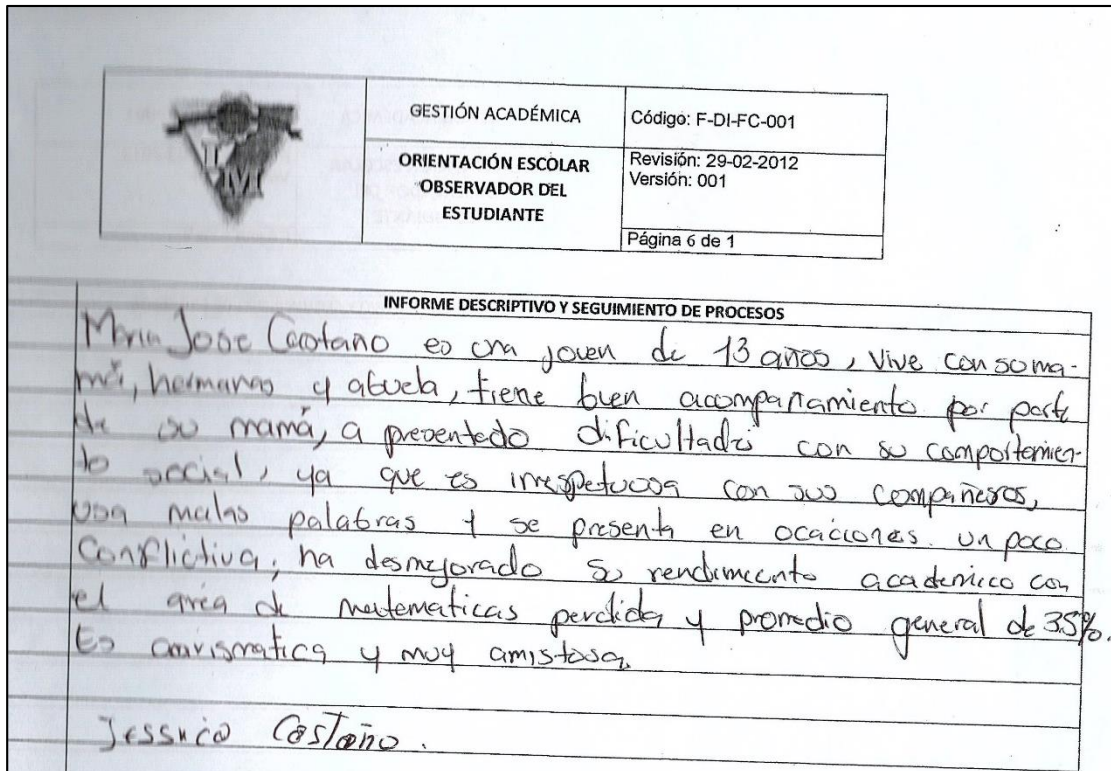 IM
GESTIÓN ACADÉMICA
Código: F-DI-FC-001
ORIENTACIÓN ESCOLAR
OBSERVADOR DEL
ESTUDIANTE
Revisión: 29-02-2012
Versión: 001
Página 6 de 1
INFORME DESCRIPTIVO Y SEGUIMIENTO DE PROCESOS
Maria Jose Castaño es una joven de 13 años, vive con su ma-
má, hermanas y abuela, tiene buen acompañamiento por parte
de su mamá, a presentado dificultades con su comportamien-
to social, ya que es irrespetuosa con sus compañeros,
usa malas palabras y se presenta en ocaciones un poco
conflictiva, ha desmejorado su rendimiento academico con
el area de matematicas perdida y promedio general de 35%.
Es carismatica y muy amistosa.
Jessica Castaño.